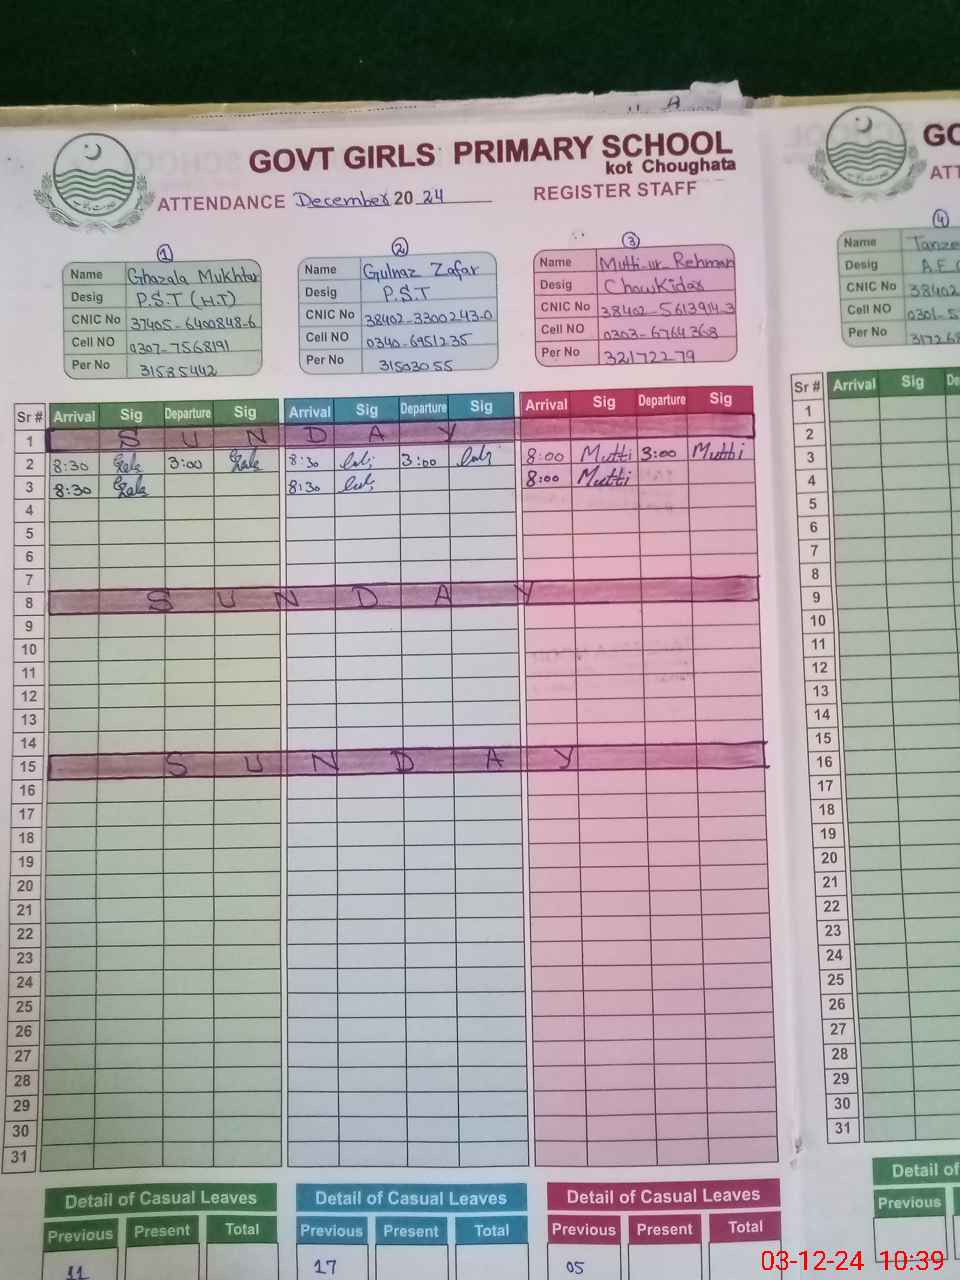 GOVT GIRLS PRIMARY SCHOOL
kot Choughata
ATTENDANCE December 20 24 REGISTER STAFF
1
Name Ghazala Mukhtar
Desig P.S.T (H.T)
CNIC No 37405-6400848-6
Cell NO 0307-7568191
Per No 31585442
2
Name Gulnaz Zafar
Desig P.S.T
CNIC No 38402-3300243-0
Cell NO 0340-6951235
Per No 31503055
3
Name Mutti-ur-Rehman
Desig Chowkidar
CNIC No 38402-5613914-3
Cell NO 0303-6764368
Per No 32172279
Sr # Arrival Sig Departure Sig Arrival Sig Departure Sig Arrival Sig Departure Sig
1 SUNDAY
2 8:30 3:00 8:30 3:00 8:00 Mutti 3:00 Mutti
3 8:30 8:30 8:00 Mutti
4
5
6
7
8 SUNDAY
9
10
11
12
13
14
15 SUNDAY
16
17
18
19
20
21
22
23
24
25
26
27
28
29
30
31
Detail of Casual Leaves Detail of Casual Leaves Detail of Casual Leaves
Previous Present Total Previous Present Total Previous Present Total
11 17 05
GO
ATT
4
Name Tanze
Desig
CNIC No 38402
Cell NO 0301-5
Per No 317268
Sr # Arrival Sig De
1
2
3
4
5
6
7
8
9
10
11
12
13
14
15
16
17
18
19
20
21
22
23
24
25
26
27
28
29
30
31
Detail of
Previous
03-12-24 10:39